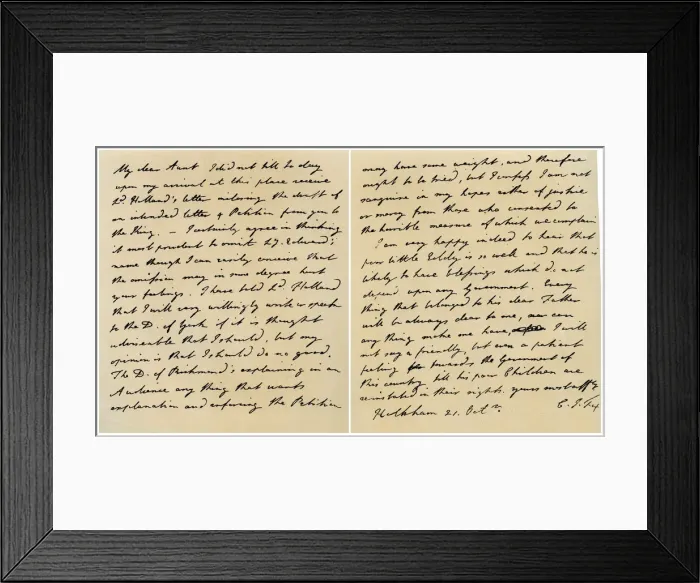 My dear Aunt I did not till to day
upon my arrival at this place receive
Ld. Holland's letter enclosing the draft of
an intended letter & Petition from you to
the King. — I certainly agree in thinking
it most prudent to omit Ld. Edward's
name though I can easily conceive that
the omission may in some degree hurt
your feelings. I have told Ld. Holland
that I will very willingly write or speak
to the D. of York if it is thought
adviseable that I should, but my
opinion is that I should do no good.
The D. of Richmond's explaining in an
Audience any thing that wants
explanation and enforcing the Petition
may have some weight, and therefore
ought to be tried, but I confess I am not
sanguine in my hopes either of justice
or mercy from those who consented to
the horrible measure of which we complain
I am very happy indeed to hear that
poor little Eddy is so well and that he is
likely to have blessings which do not
depend upon any Government. Every
thing that belonged to his dear Father
will be always dear to me, nor can
any thing make me have, I will
not say a friendly, but even a patient
feeling towards the Government of
this country till his poor Children are
reinstated in their rights. yours most affly
C. J. Fox
Holkham 21. Octr.